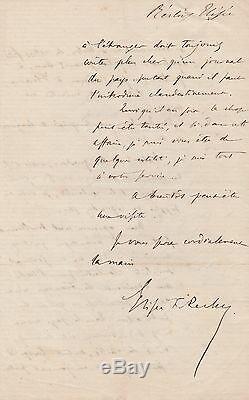 Reclus Elisée
à l'étranger doit toujours
coûter plus cher qu'un journal
du pays, surtout quand il faut
l'introduire clandestinement.
Quoiqu'il en soit la chose
peut être tentée, et si dans cette
affaire, je puis vous être de
quelque utilité, je suis tout
à votre service.
A bientôt peut-être
une visite
Je vous serre cordialement
la main
Elisée Reclus